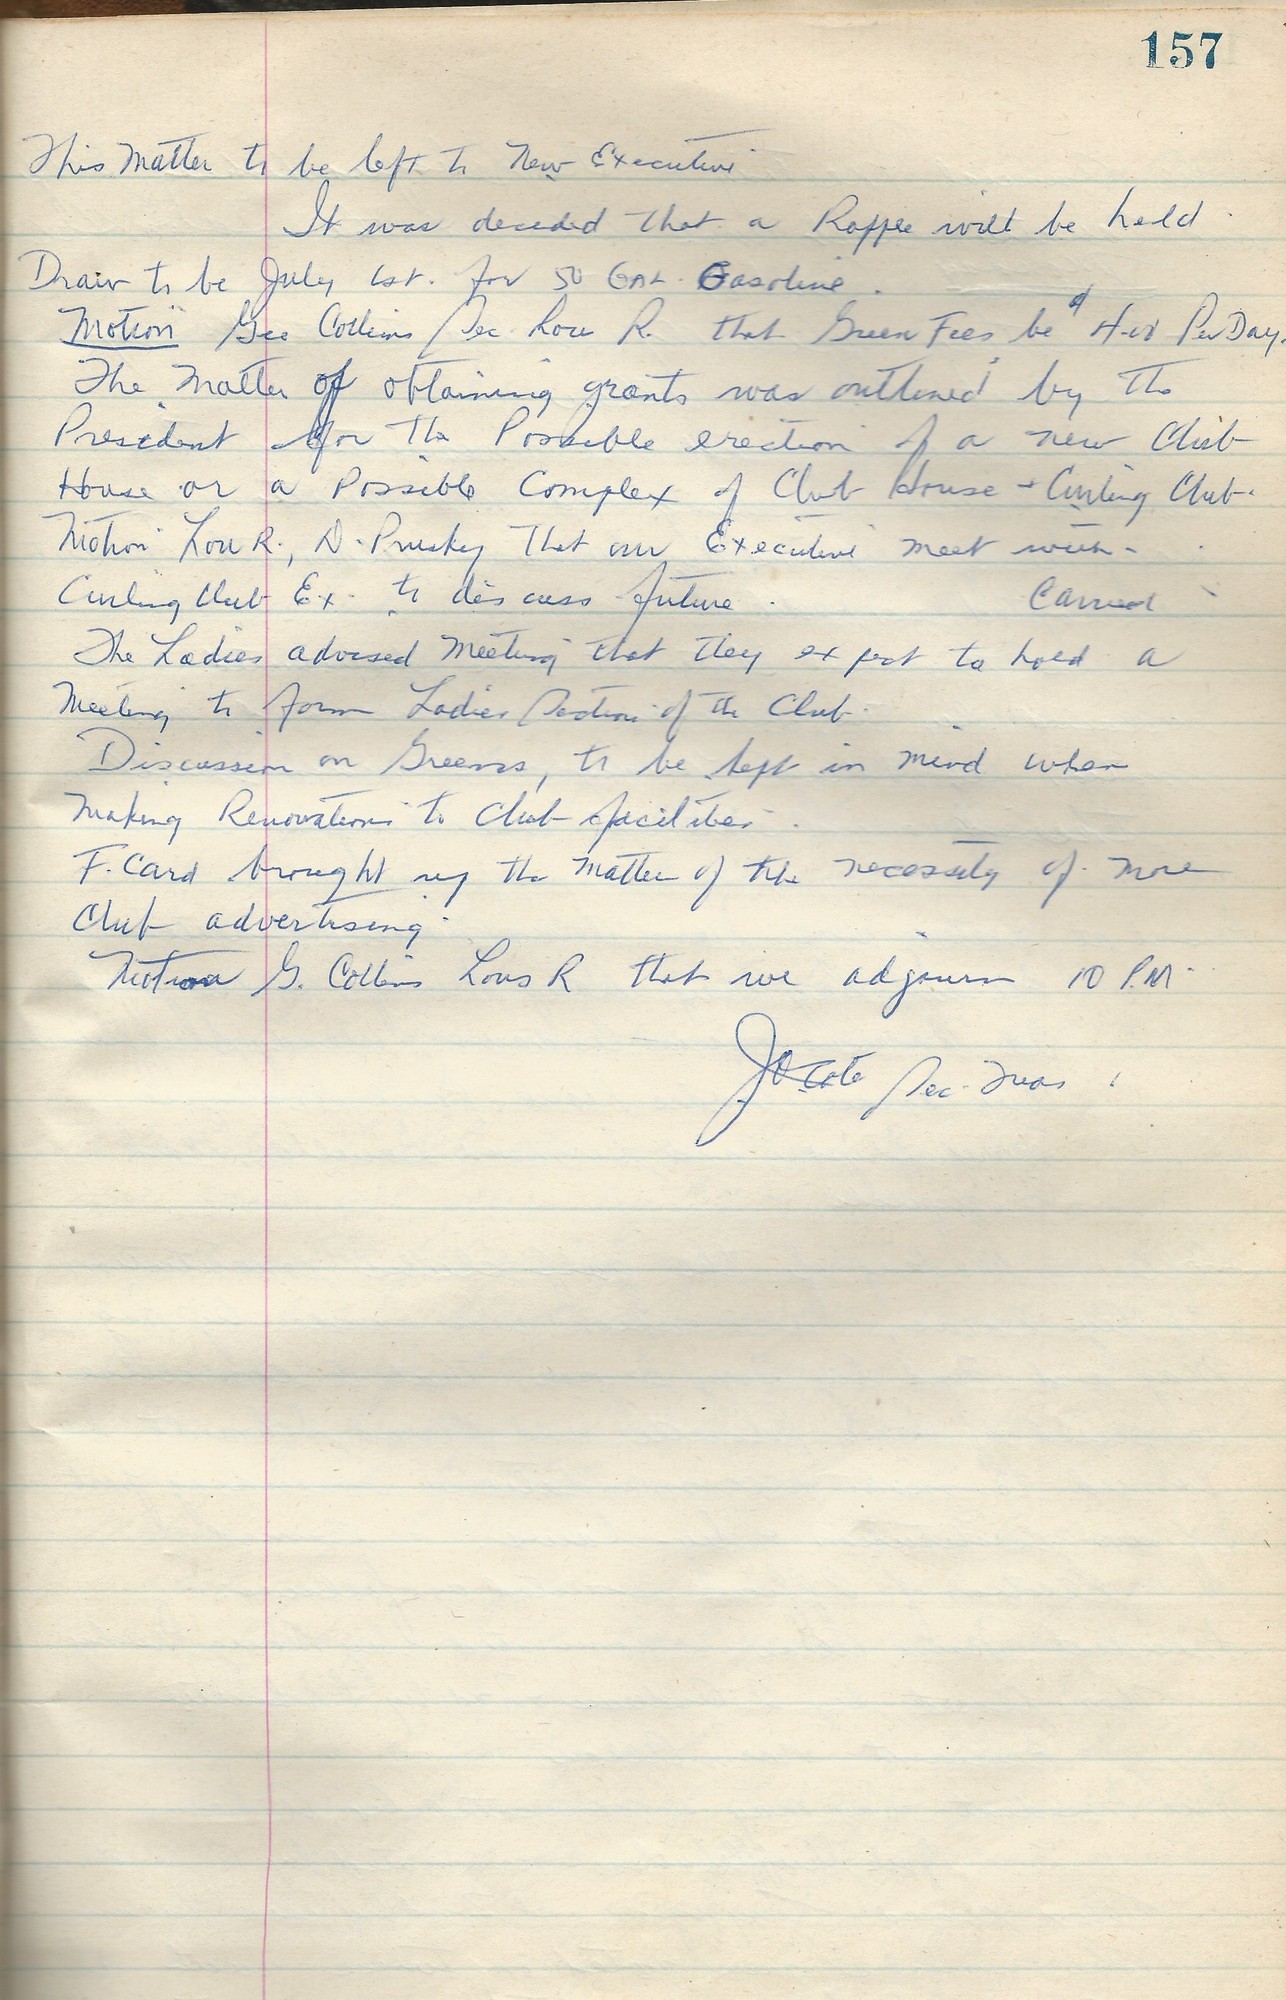 157
This Matter to be left to New Executive
It was decided that a Raffle will be held
Draw to be July 1st. for 50 GAL. Gasoline.
Motion Geo Collins Sec. Lou R. that Green Fees be $4.00 Per Day.
The Matter of obtaining grants was outlined by the
President for the Possible erection of a new Club
House or a Possible Complex of Club House + Curling Club.
Motion Lou R., D. Prusky That our Executive meet with
Curling Club Ex. to discuss future. Carried
The Ladies advised Meeting that they expect to hold a
Meeting to form Ladies Section of the Club.
Discussion on Greens, to be kept in mind when
Making Renovations to Club facilities.
F. Card brought up the Matter of the necessity of more
Club advertising.
Motion G. Collins Lous R that we adjourn 10 P.M.
Cote Sec. Treas